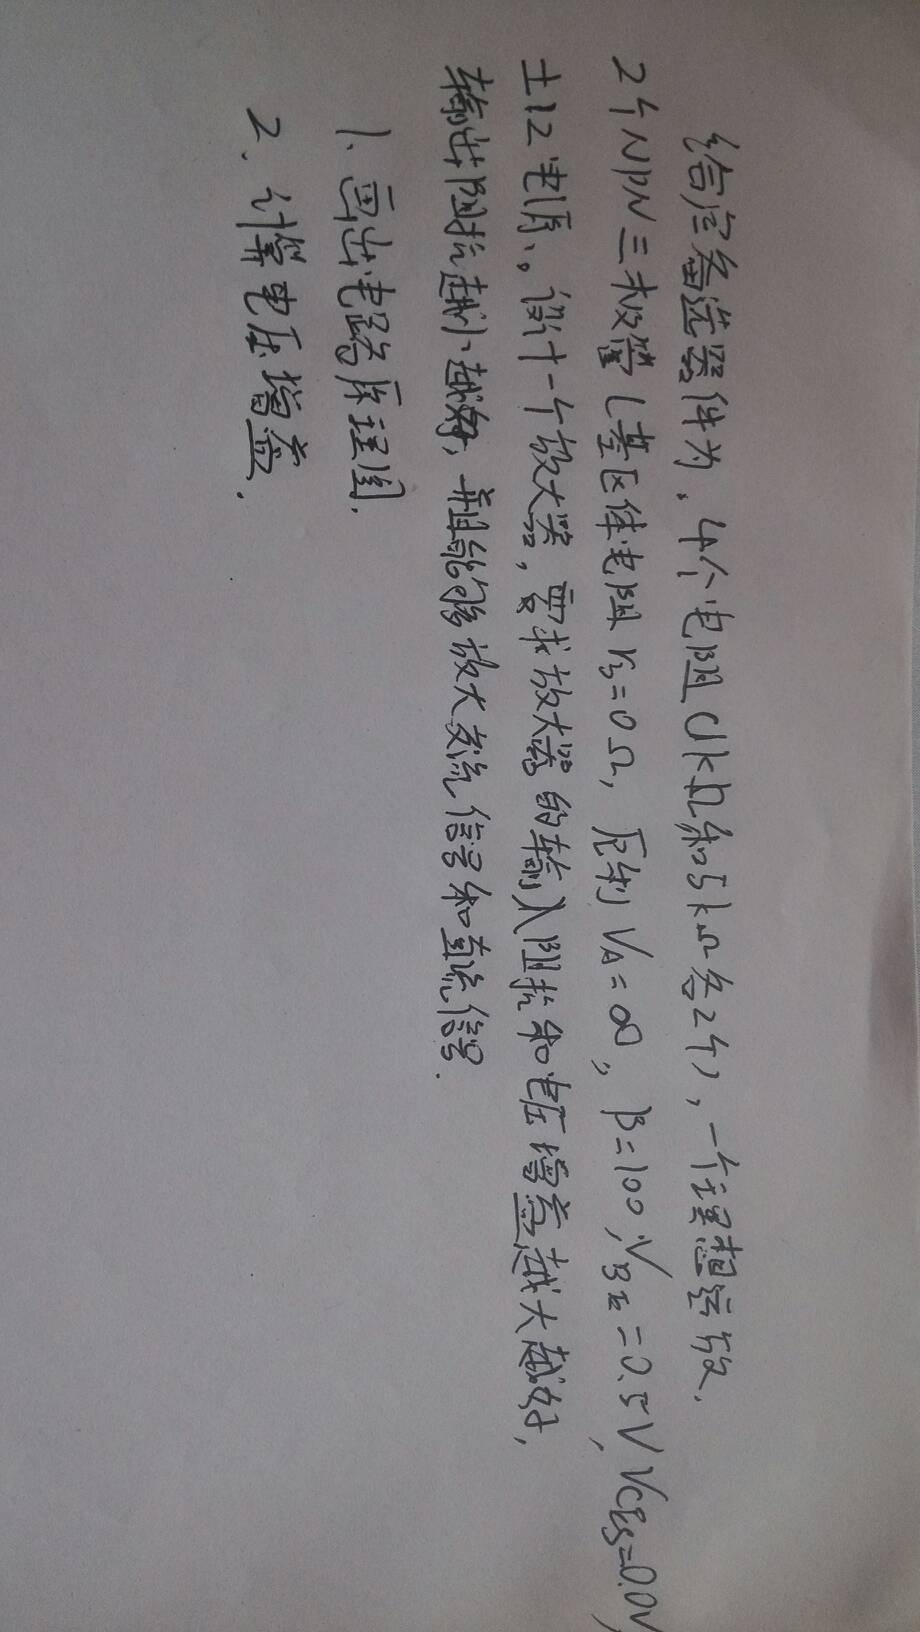 给定备选器件为,4个电阻(1kΩ和5kΩ各2个),一个理想运放.
2个NPN三极管(基区体电阻 rb=0Ω, 厄利 VA=∞, β=100, VBE=0.5V, VCES=0.0V,
±12电源。设计一个放大器,要求放大器的输入阻抗和电压增益越大越好,
输出阻抗越小越好,并且能够放大交流信号和直流信号.
1、画出电路原理图.
2、计算电压增益.